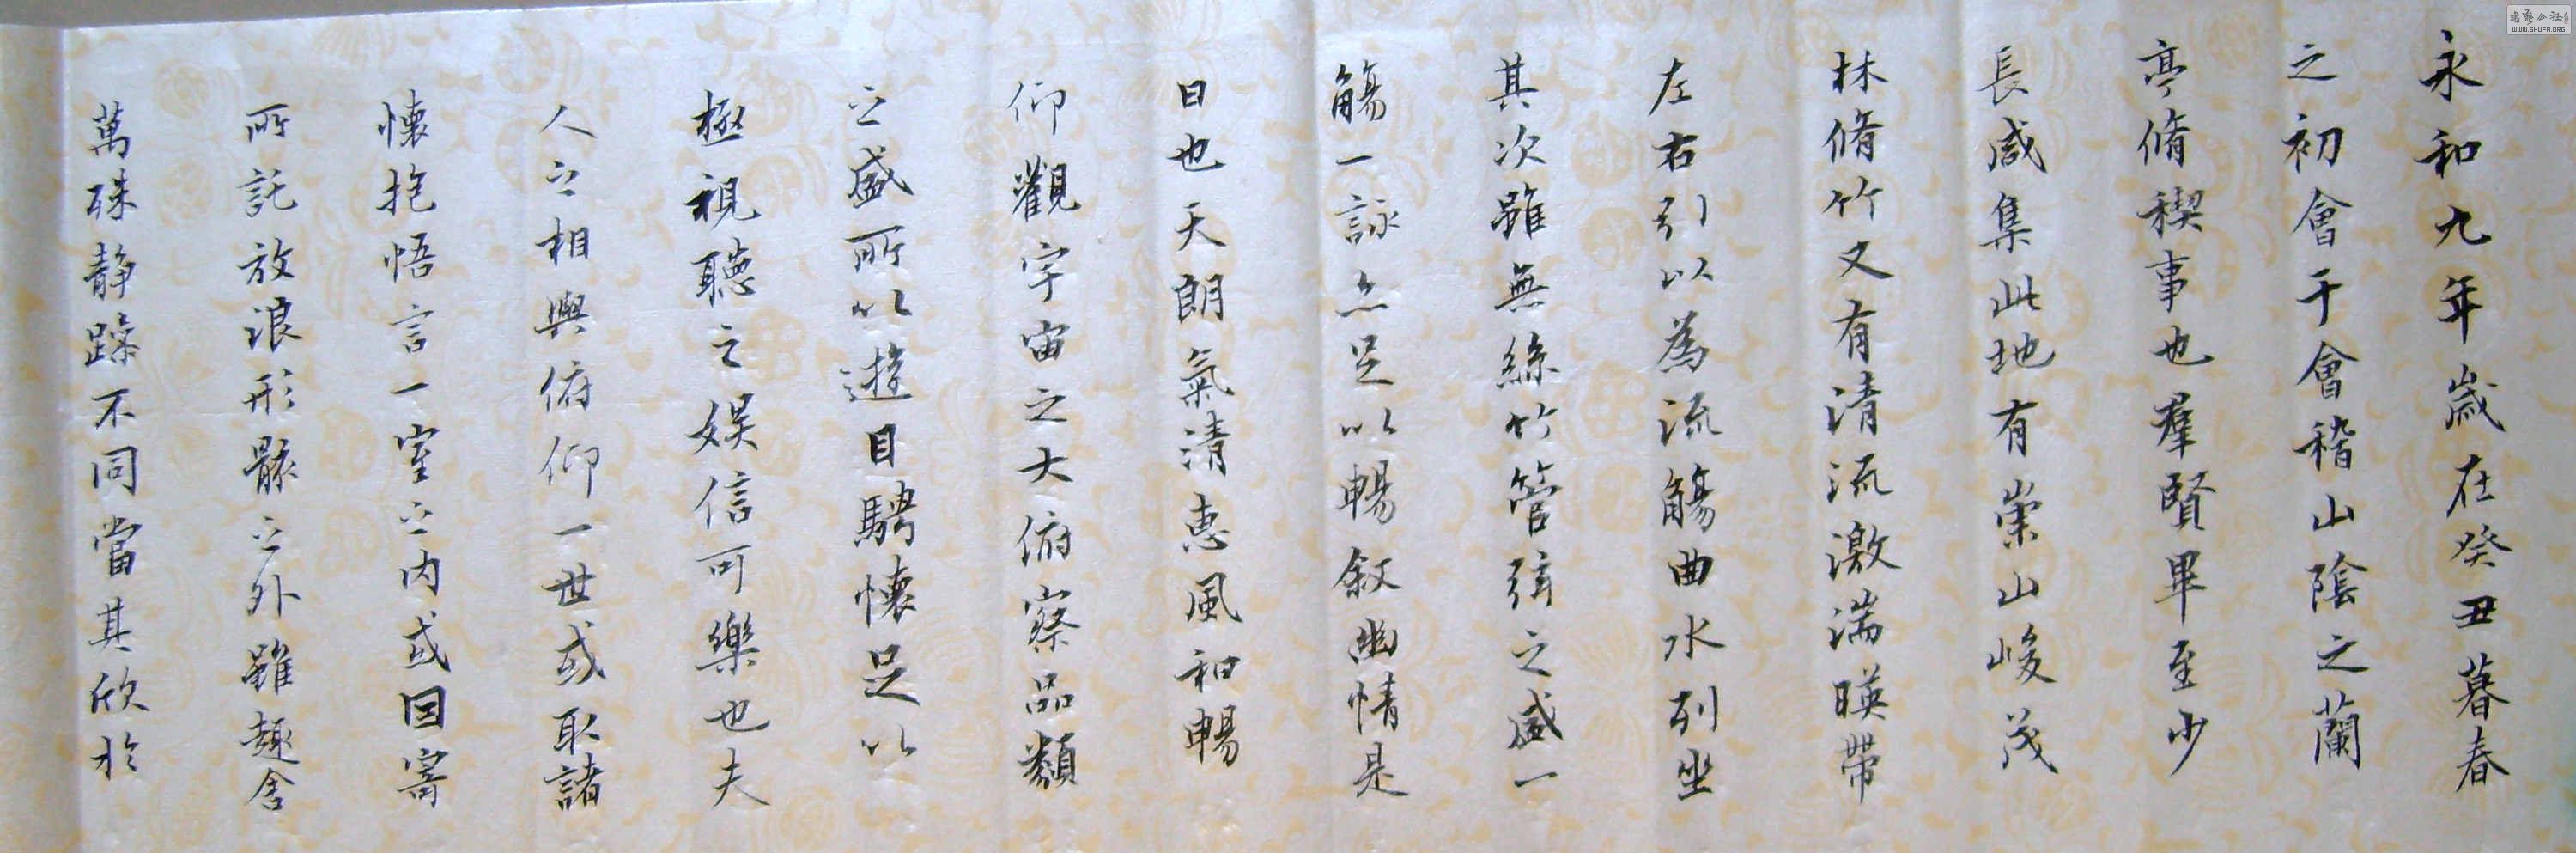 永和九年歲在癸丑暮春
之初會于會稽山陰之蘭
亭脩稧事也羣賢畢至少
長咸集此地有崇山峻茂
林脩竹又有清流激湍暎帶
左右引以為流觴曲水列坐
其次雖無絲竹管弦之盛一
觴一詠亦足以暢敘幽情是
日也天朗氣清惠風和暢
仰觀宇宙之大俯察品類
之盛所以遊目騁懷足以
極視聽之娛信可樂也夫
人之相與俯仰一世或取諸
懷抱悟言一室之内或因寄
所託放浪形骸之外雖趣舍
萬殊静躁不同當其欣於
WWW.SHUFA.ORG